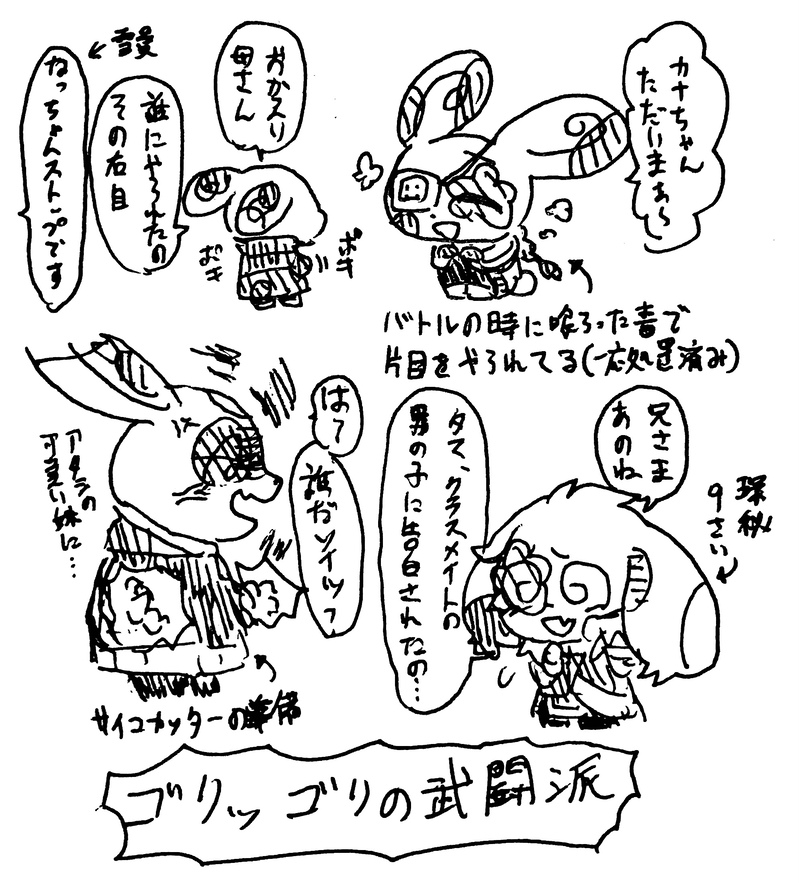 カナちゃん
ただいまぁ〜
バトルの時に喰らった毒で
片目をやられてる(一応処置済み)
おかえり
母さん
ボキ
ボキ
誰にやられたの
その右目
なっちゃんストップです
兄さま
あのね
9さい
タマ、クラスメイトの
男の子に告白されたの…
はて
誰だソイツっ
アタシの
可愛い妹に…
サイコカッターの準備
ゴリッゴリの武闘派